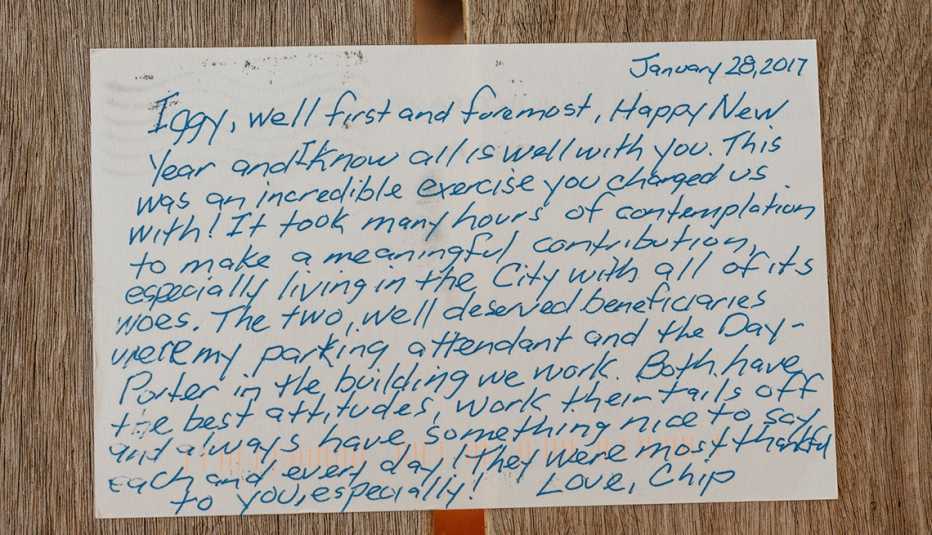 January 28, 2017
Iggy, well first and foremost, Happy New
Year and I know all is well with you. This
was an incredible exercise you charged us
with! It took many hours of contemplation
to make a meaningful contribution,
especially living in the City with all of its
woes. The two, well deserved beneficiaries
were my parking attendant and the Day-
Porter in the building we work. Both have
the best attitudes, work their tails off
and always have something nice to say
each and every day! They were most thankful
to you, especially! Love, Chip